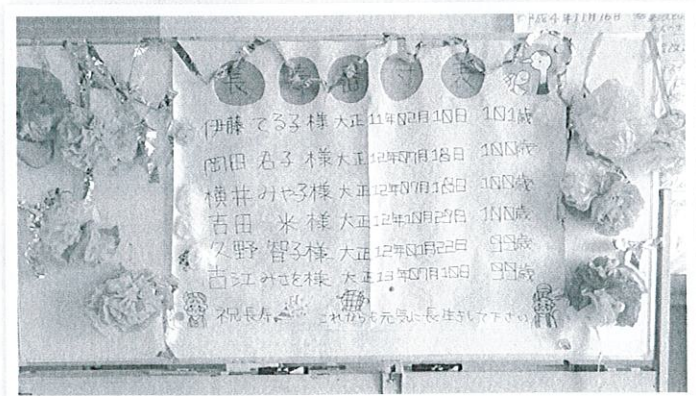 4年11月16日
長寿番付表
伊藤 てる子様 大正11年02月10日 101歳
岡田 君子 様 大正12年07月18日 100歳
横井 みや子様 大正12年07月18日 100歳
吉田 米 様 大正12年10月29日 100歳
久野 智子様 大正12年01月22日 99歳
古江 みさを様 大正13年07月10日 99歳
祝長寿 これからも元気に長生きして下さい